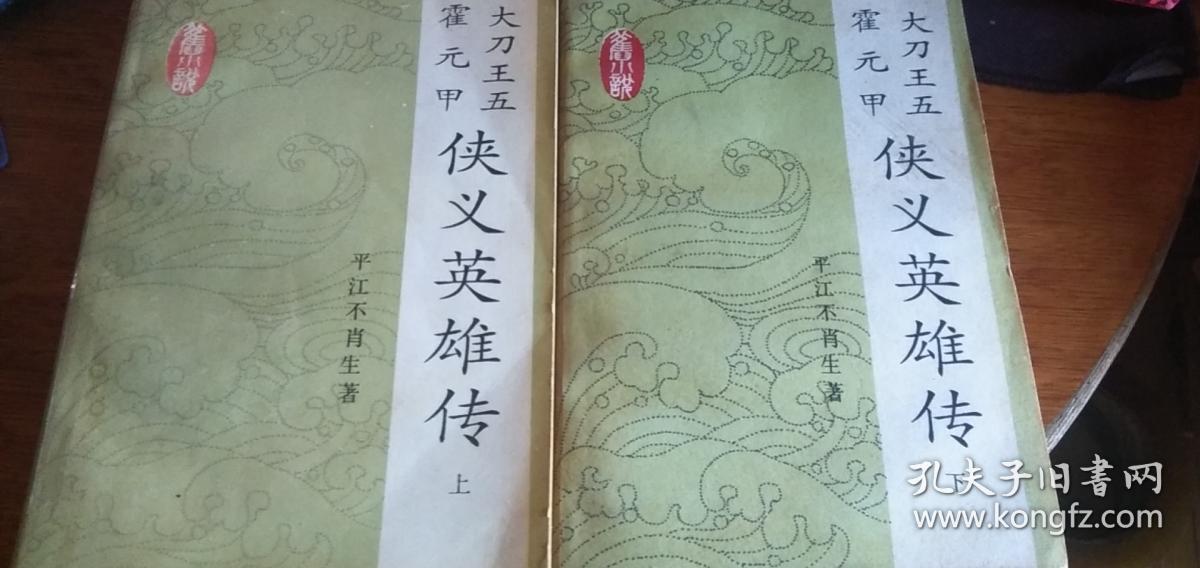 舊小說
大刀王五
霍元甲
侠义英雄传
上
平江不肖生著
舊小說
大刀王五
霍元甲
侠义英雄传
下
平江不肖生著
孔夫子旧书网
www.kongfz.com